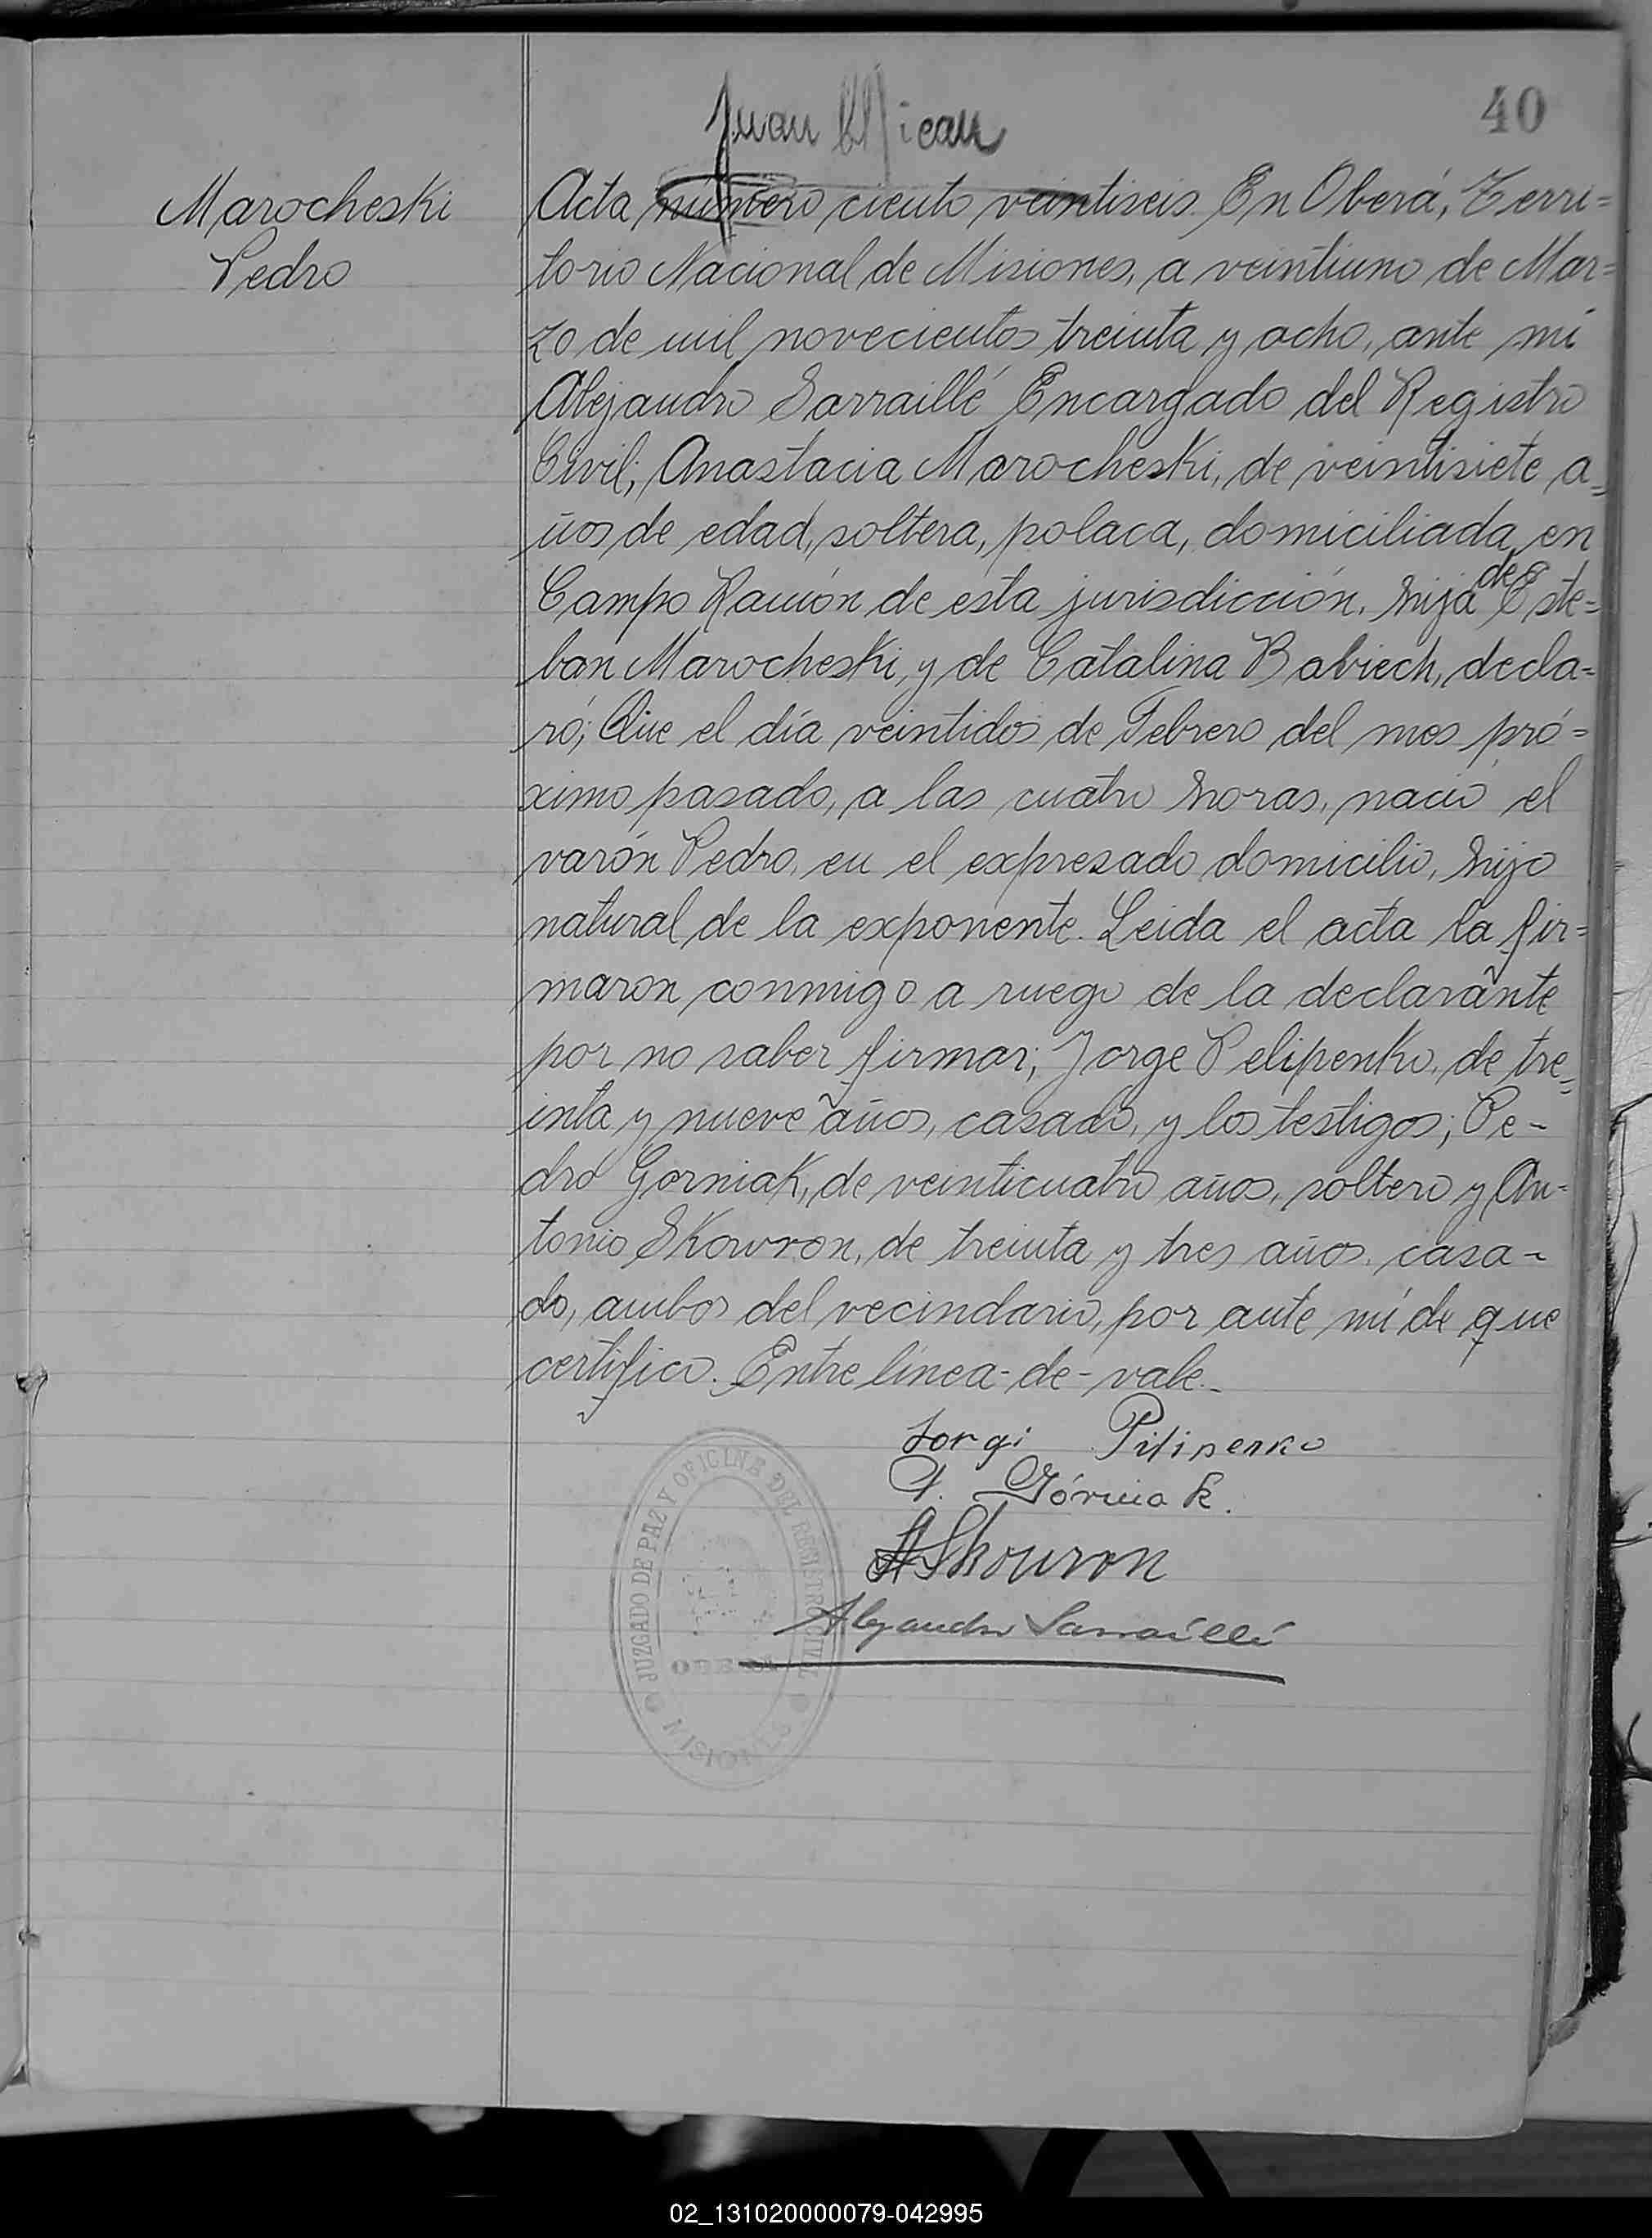 40
Juan
Marocheski
Pedro
Acta número ciento veintiseis. En Oberá, Terri=
torio Nacional de Misiones, a veintiuno de Mar=
zo de mil novecientos treinta y ocho, ante mí
Alejandro Sarraillé Encargado del Registro
Civil; Anastacia Marocheski, de veintisiete a=
ños de edad, soltera, polaca, domiciliada en
Campo Ramón de esta jurisdicción, hija de Este=
ban Marocheski, y de Catalina Babiech, decla=
ró; Que el día veintidos de Febrero del mes pró=
ximo pasado, a las cuatro horas, nació el
varón Pedro, en el expresado domicilio, hijo
natural de la exponente. Leida el acta la fir=
maron conmigo a ruego de la declarante
por no saber firmar; Jorge Pelipenko, de tre=
inta y nueve años, casado, y los testigos; Pe-
dro Gorniak, de veinticuatro años, soltero y An=
tonio Skowron, de treinta y tres años, casa-
do, ambos del vecindario, por ante mí de que
certifico. Entre línea-de-vale.-
Jorgi Pilipenko
P. Górniak.
ASkowron
Alejandro Sarraillé
JUZGADO DE PAZ Y OFICINA DEL REGISTRO CIVIL
OBERA
MISIONES
02_131020000079-042995